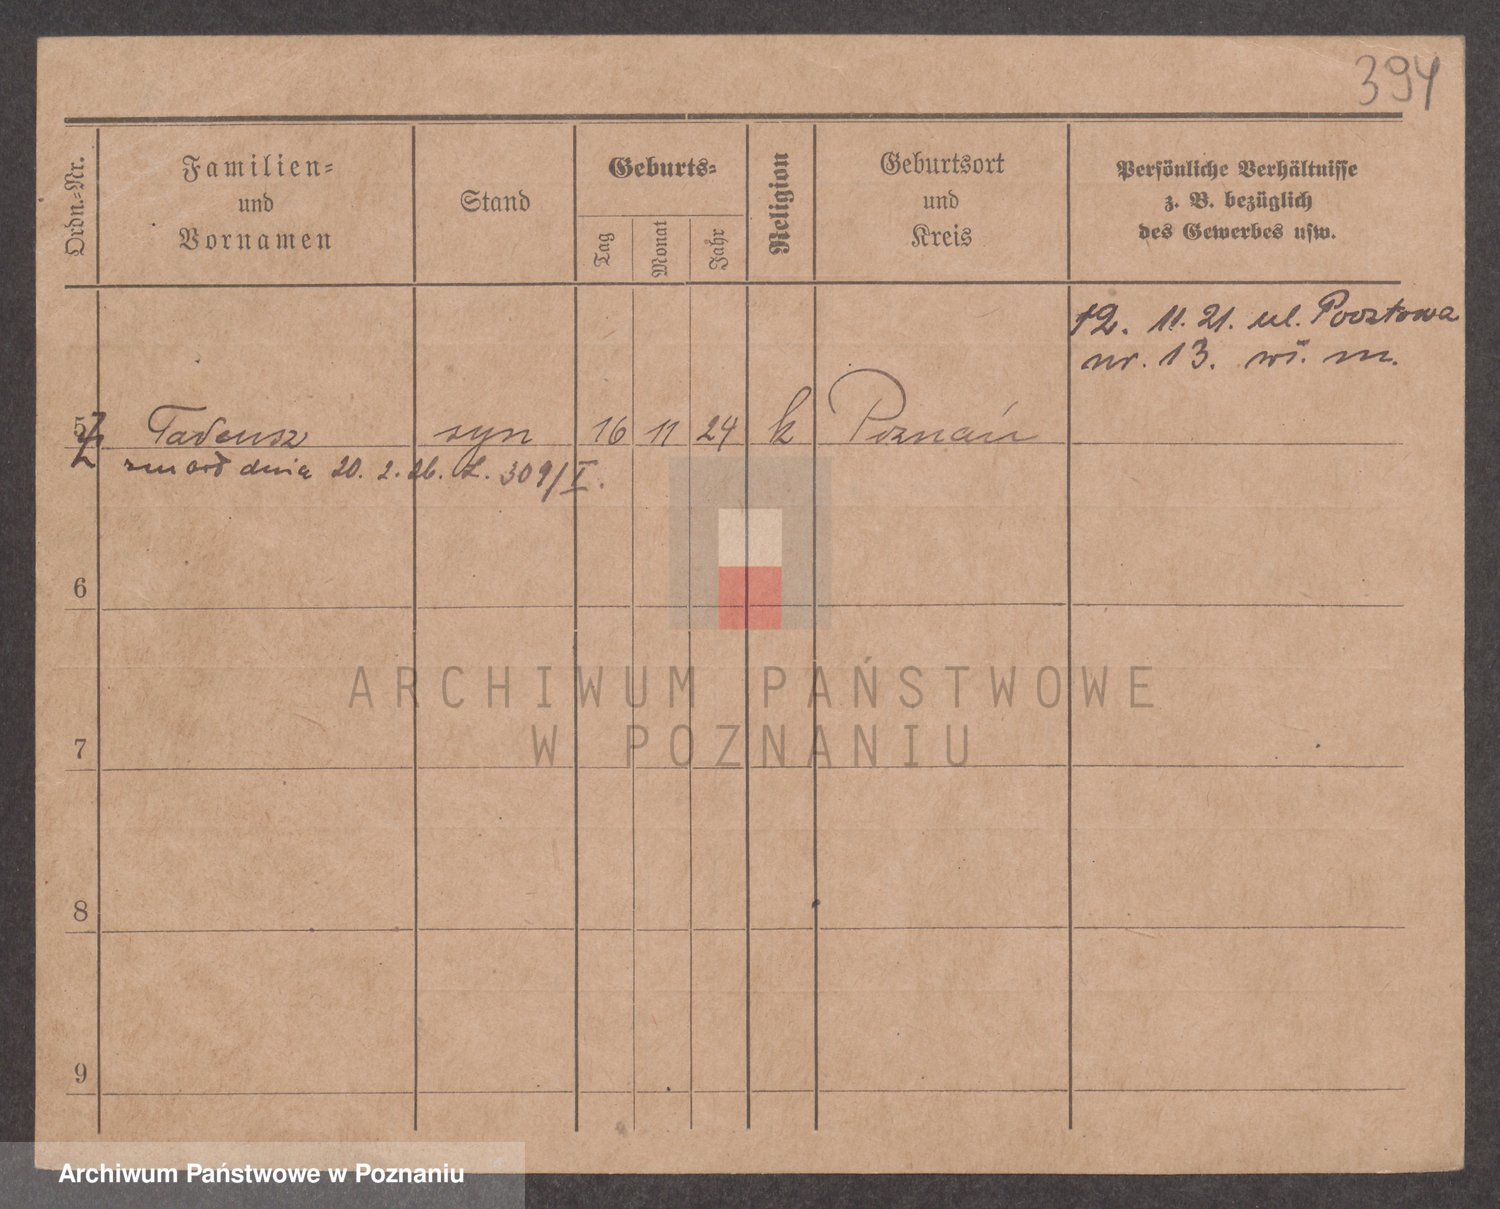 394
Ordn.-Nr.
Familien-
und
Vornamen
Stand
Geburts-
Tag
Monat
Jahr
Religion
Geburtsort
und
Kreis
Persönliche Verhältnisse
z. B. bezüglich
des Gewerbes usw.
12. 11. 21. ul. Pocztowa
nr. 13. wł. m.
5 Tadeusz syn 16 11 24 k Poznań
zmarł dnia 20. 2. 26. L. 309/I.
6
ARCHIWUM PAŃSTWOWE
W POZNANIU
7
8
9
Archiwum Państwowe w Poznaniu